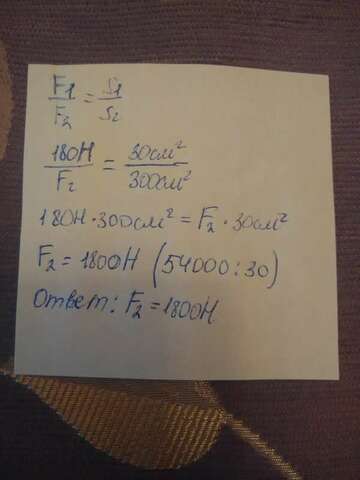 F1/F2 = S1/S2
180Н/F2 = 30см²/300см²
180Н · 300см² = F2 · 30см²
F2 = 1800Н (54000:30)
Ответ: F2 = 1800Н